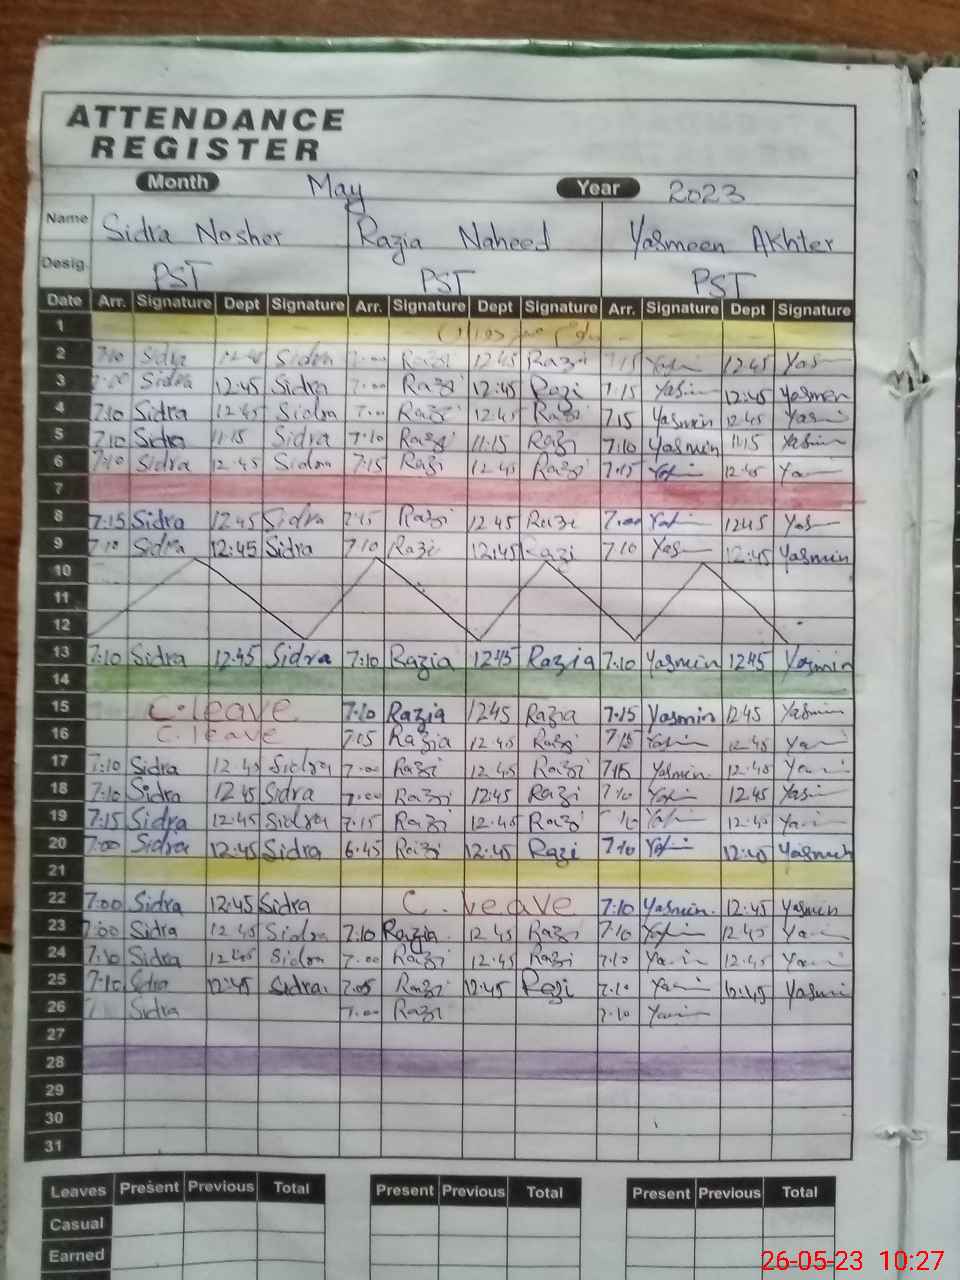 ATTENDANCE
REGISTER
Month May Year 2023
Name Sidra Nosher Razia Naheed Yasmeen Akhter
Desig. PST PST PST
Date Arr. Signature Dept Signature Arr. Signature Dept Signature Arr. Signature Dept Signature
1
2 7:10 Sidra 12:45 Sidra Razi 12:45 Razi 7:15 12:45 Yas
3 Sidra 12:45 Sidra 7:00 Razi 12:45 Razi 7:15 Yasmin 12:45 Yasmen
4 7:10 Sidra 12:45 Sidra 7:00 Razi 12:45 Razi 7:15 Yasmin 12:45
5 7:10 Sidra 11:15 Sidra 7:10 Razi 11:15 Razi 7:10 Yasmin 11:15 Yasmin
6 7:10 Sidra 12:45 Sidra 7:15 Razi 12:45 Razi 7:15 12:45
7
8 7:15 Sidra 12 45 Sidra 7:15 Razi 12 45 Razi 7:00 12 45 Yas
9 7:10 Sidra 12:45 Sidra 7:10 Razi 12:45 Razi 7:10 Yas 12:45 Yasmin
10
11
12
13 7:10 Sidra 12:45 Sidra 7:10 Razia 12:45 Razia 7:10 Yasmin 12:45 Yasmin
14
15 C.leave 7:10 Razia 12:45 Razia 7:15 Yasmin 12:45 Yasmin
16 C.leave 7:15 Razia 12:45 Razi 7:15 12:45
17 7:10 Sidra 12:45 Sidra 7:00 Razi 12:45 Razi 7:15 Yasmin. 12:45
18 7:10 Sidra 12 45 Sidra 7:00 Razi 12:45 Razi 7:10 12 45 Yasi
19 7:15 Sidra 12:45 Sidra 7:15 Razi 12:45 Razi 12:45
20 7:00 Sidra 12:45 Sidra 6:45 Razi 12:45 Razi 7:10 12:45 Yasmeen
21
22 7:00 Sidra 12:45 Sidra C. leave 7:10 Yasmin. 12:45 Yasmin
23 7:00 Sidra 12 45 Sidra 7:10 Razia 12 45 Razi 7:10 12:45
24 7:10 Sidra 12:45 Sidra 7:00 Razi 12:45 Razi 7:10 12:45
25 7:10 Sidra 12:45 Sidra. 7:05 Razi 12:45 Razi 7:10 12:45 Yasmi
26 Sidra 7:00 Razi 7:10
27
28
29
30
31
Leaves Present Previous Total Present Previous Total Present Previous Total
Casual
Earned
26-05-23 10:27